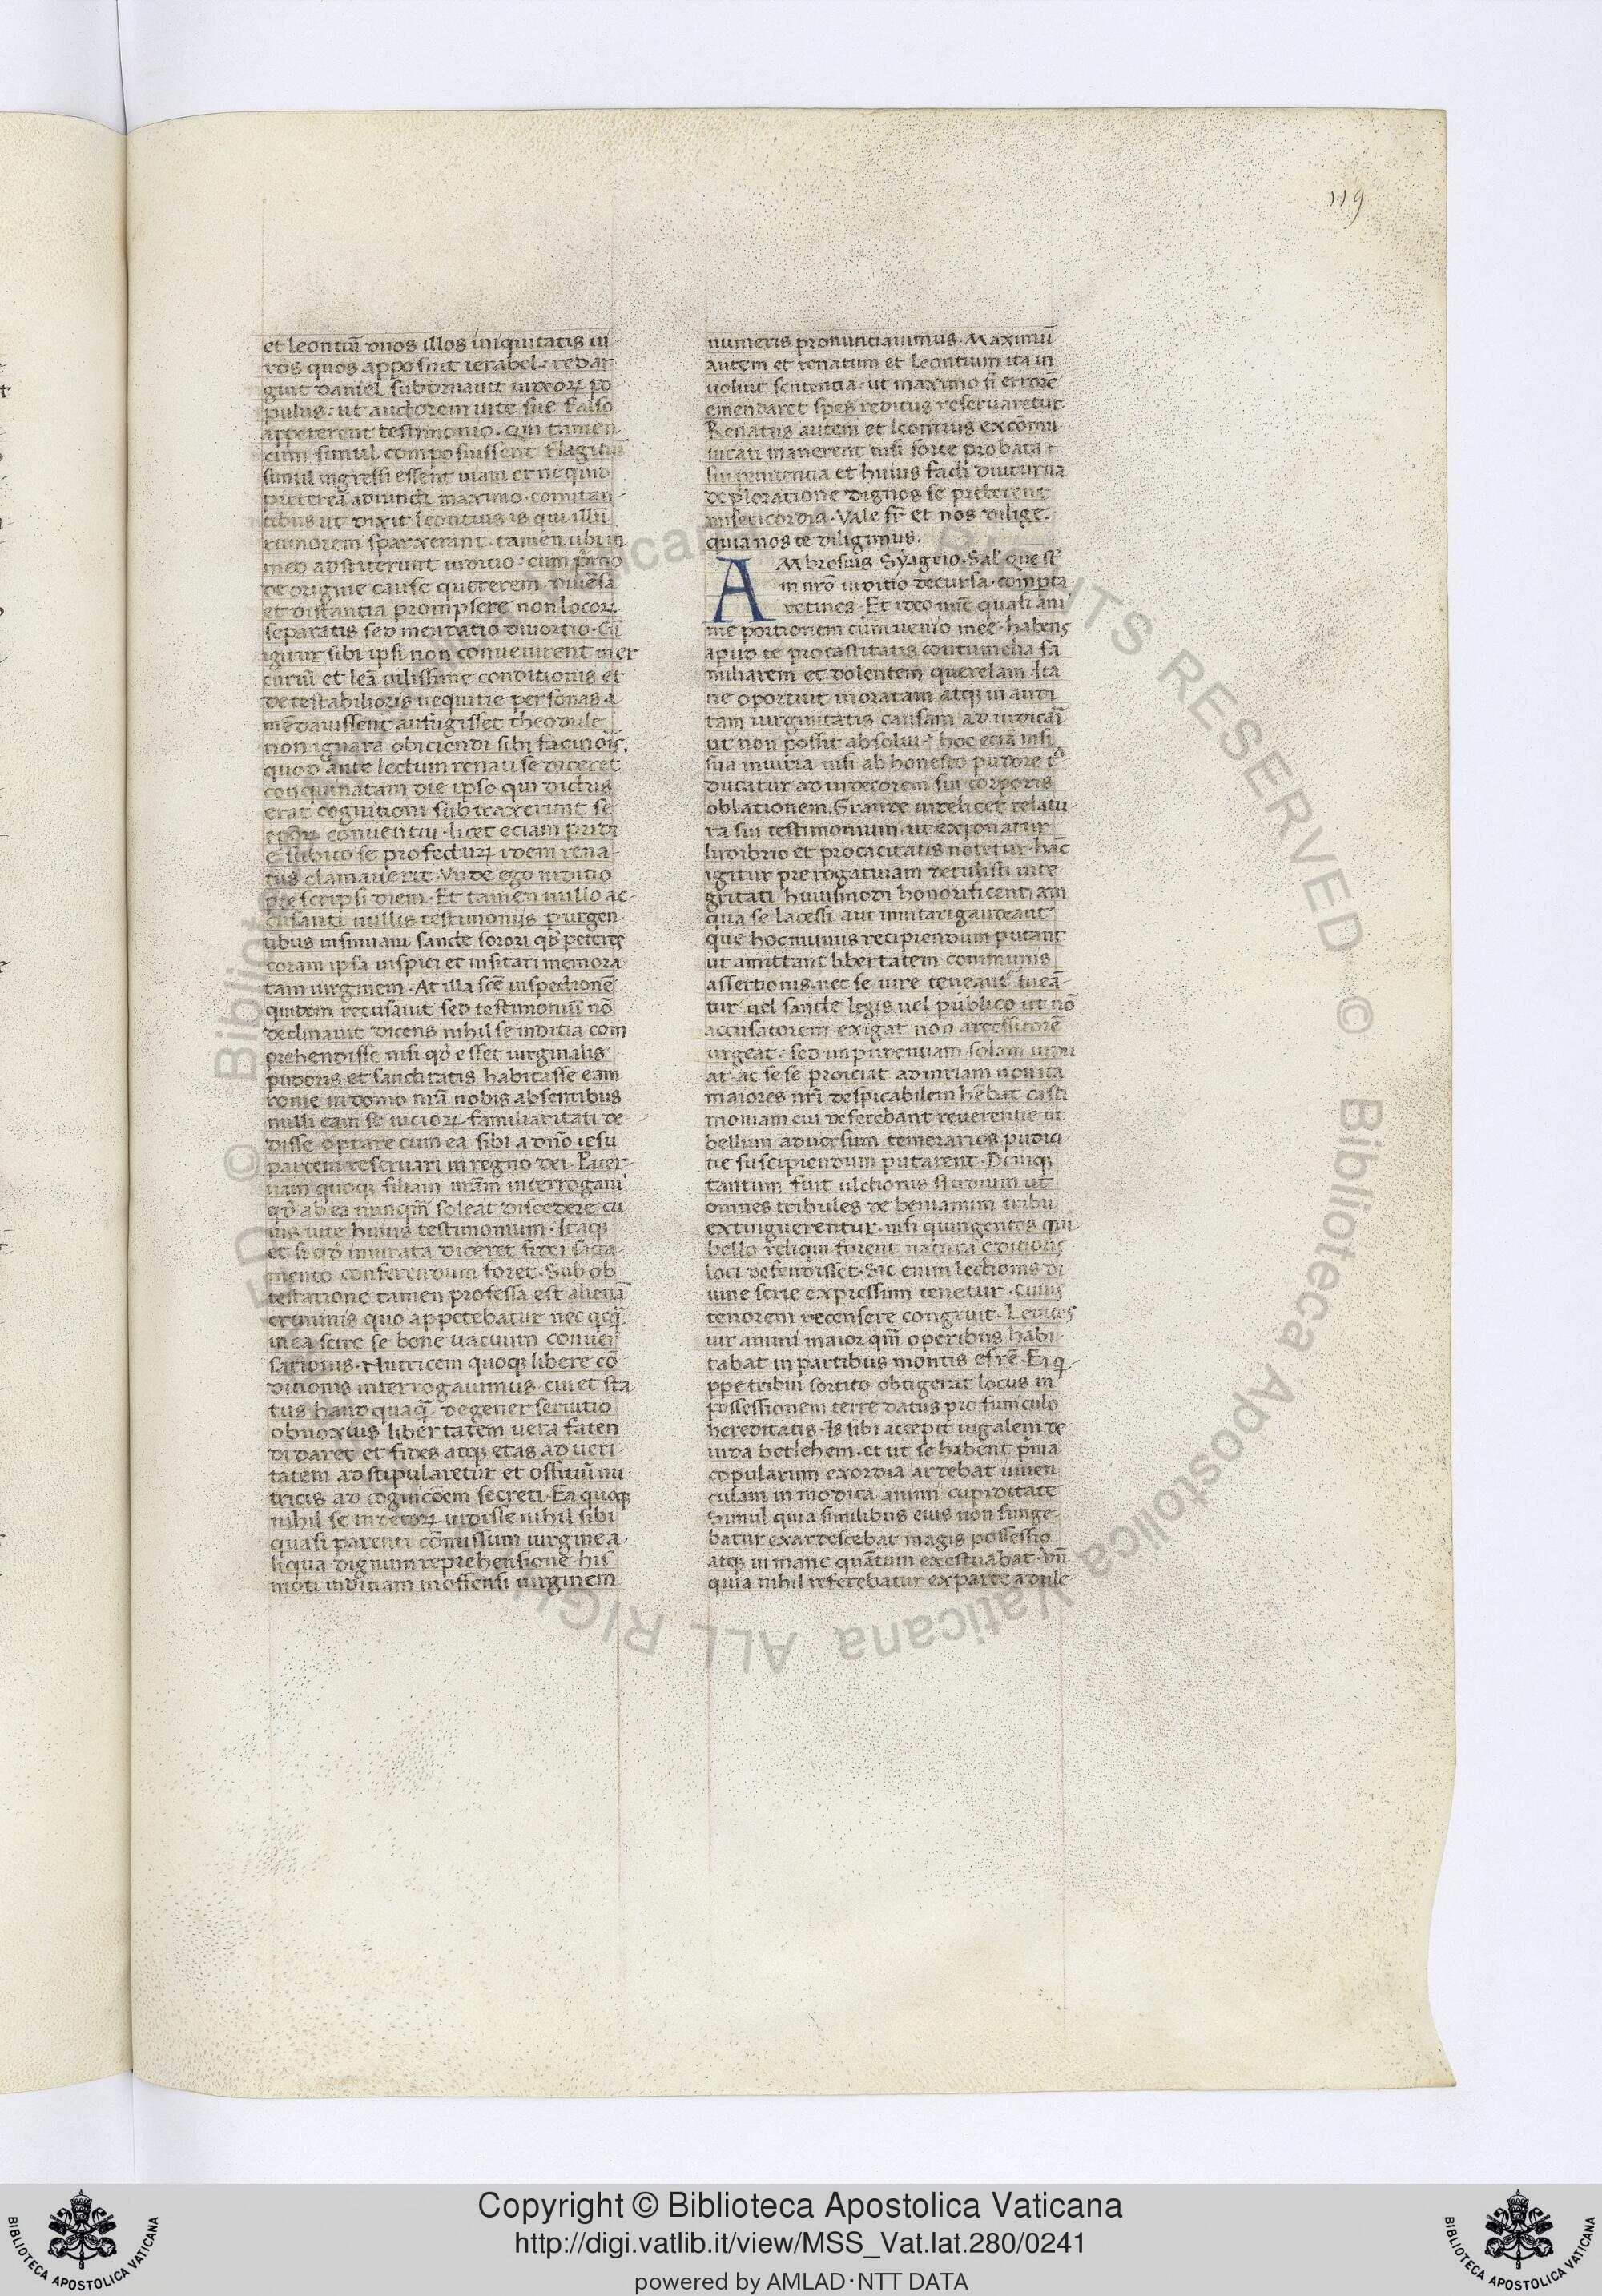 119
et leontiū duos illos iniquitatis ui-
ros quos apposuit iezabel: redar
guit daniel subornauit iudeoꝝ po
pulus: ut auctorem uite sue falso
appeterent testimonio. Qui tamen
cum simul composuissent flagitiū
simul ingressi essent uiam et ne quid
preterea adiuncti maximo. comitan-
tibus ut dixit leontius is qui illū
rumorem sparxerant. tamen ubi in
meo adstiterunt iuditio: cum
de origine cause quererem diuersa
et distantia prompsere non locoꝝ
separatis sed mendatio diuortio. Cū
igitur sibi ipsi non conuenirent mer
curiū et leā uilissime conditionis et
detestabilioris nequitie personas a
mēdauissent aufugisset theodule
non ignara obiciendi sibi facinoris.
quod ante lectum renati se diceret
conquinatam die ipso qui dictus
erat cognitioni subtraxerunt se
eꝑoꝝ conuentui. licet eciam pridi
e subito se profecturꝝ idem rena-
tus clamauerit. Vnde ego iuditio
prescripsi diem. Et tamen nullo ac-
cusanti nullis testimoniis purgen
tibus insinuaui sancte sorori qd̄ peteret
coram ipsa inspici et uisitari memora
tam uirginem. At illa scē inspectionē
quidem recusauit sed testimoniū nō
declinauit dicens nihil se inditia com
prehendisse nisi qd̄ esset uirginalis
pudoris et sanctitatis habitasse eam
rome in domo nrā nobis absentibus
nulli eam se iucioꝝ familiaritati de-
disse optare cum ea sibi a dnō iesu
partem reseruari in regno dei. Pater-
nam quoqꝫ filiam nrām interrogaui
qd̄ ab ea nunqm̄ soleat discedere cu
ius uite huius testimonium. Itaqꝫ
et si qd̄ iniurata diceret fidei sacra-
mento conferendum foret. Sub ob
testatione tamen professa est alienā
criminis quo appetebatur nec qcq̄
in ea scire se bone uacuum conuer
sationis. Nutricem quoqꝫ libere cō
ditionis interrogauimus. cui et sta
tus haud quaq̄ degener seruitio
obnoxius libertatem uera faten
di daret et fides atqꝫ etas ad ueri-
tatem adstipularetur et offitiū nu-
tricis ad cognicōem secreti. Ea quoqꝫ
nihil se indecoꝝ uidisse nihil sibi
quasi parenti cōmissum uirgine a-
liqua dignum reprehensione. his
moti indiciam inoffensi uirginem
numeris pronuntiauimus. Maximū
autem et renatum et Leontium ita in
uoluit sententia. ut maximo si errorē
emendaret spes reditus reseruaretur.
Renatus autem et leontius excōmu
nicati manerent nisi forte probata
sui penitentia et huius facti diuturna
deploratione dignos se preberent
misericordia. Vale fr̄ et nos dilige.
quia nos te diligimus.
AMbrosius Syagrio. Sal̄ que sr̄
in nrō iuditio decursa. compta
retines. Et ideo nūc quasi ani
me portionem cūm uenio mee. habens
apud te pro castitatis contumelia fa
miliarem et dolentem querelam. Ita
ne oportuit inoratam atqꝫ in audi
tam uirginitatis causam ad iudicari
ut non possit absolui. hoc eciā nisi
sua iniuria nisi ab honesto pudore
ducatur ad indecorem sui corporis
oblationem. Grande uidelicet relatu-
ra sui testimonium. ut exponatur
ludibrio et procacitatis notetur. hāc
igitur prerogatiuam detulisti inte
gritati huiusmodi honorificentiam
qua se lacessi aut inuitari gaudeant
que hoc munus recipiendum putant
ut amittant libertatem communis
assertionis. nec se iure teneant tueā
tur uel sancte legis uel publico ut nō
accusatorem exigat non arcessitorē
urgeat. sed impudentiam solam indu
at. ac se se proiciat ad iniuriam non ita
maiores nrī despicabilem hēbāt casti
moniam cui deferebant reuerentie ut
bellum aduersum temerarios pudici-
tie suscipiendum putarent. Deniqꝫ
tantum fuit ulctionis studium ut
omnes tribules de beniamim tribu
extinguerentur. nisi quingentos qui
bello reliqui forent natura editioris
loci defendisset. Sic enim lectionis di
uine serie expressum tenetur. Cuius
tenorem recensere congruit. Leuites
uir animi maior qm̄ operibus habi-
tabat in partibus montis efrē. Ei q-
ppe tribui sortito obtigerat locus in
possessionem terre datus pro funiculo
hereditatis. Is sibi accepit iugalem de
iuda betlehem. et ut se habent pīma
copularum exordia ardebat iuuen
culam in modica animi cupiditate
Simul quia similibus eius non funge-
batur exardescebat magis possessio
atqꝫ inmane quantum exestuabat.
quia nihil referebatur ex parte adule
Copyright © Biblioteca Apostolica Vaticana
http://digi.vatlib.it/view/MSS_Vat.lat.280/0241
powered by AMLAD·NTT DATA